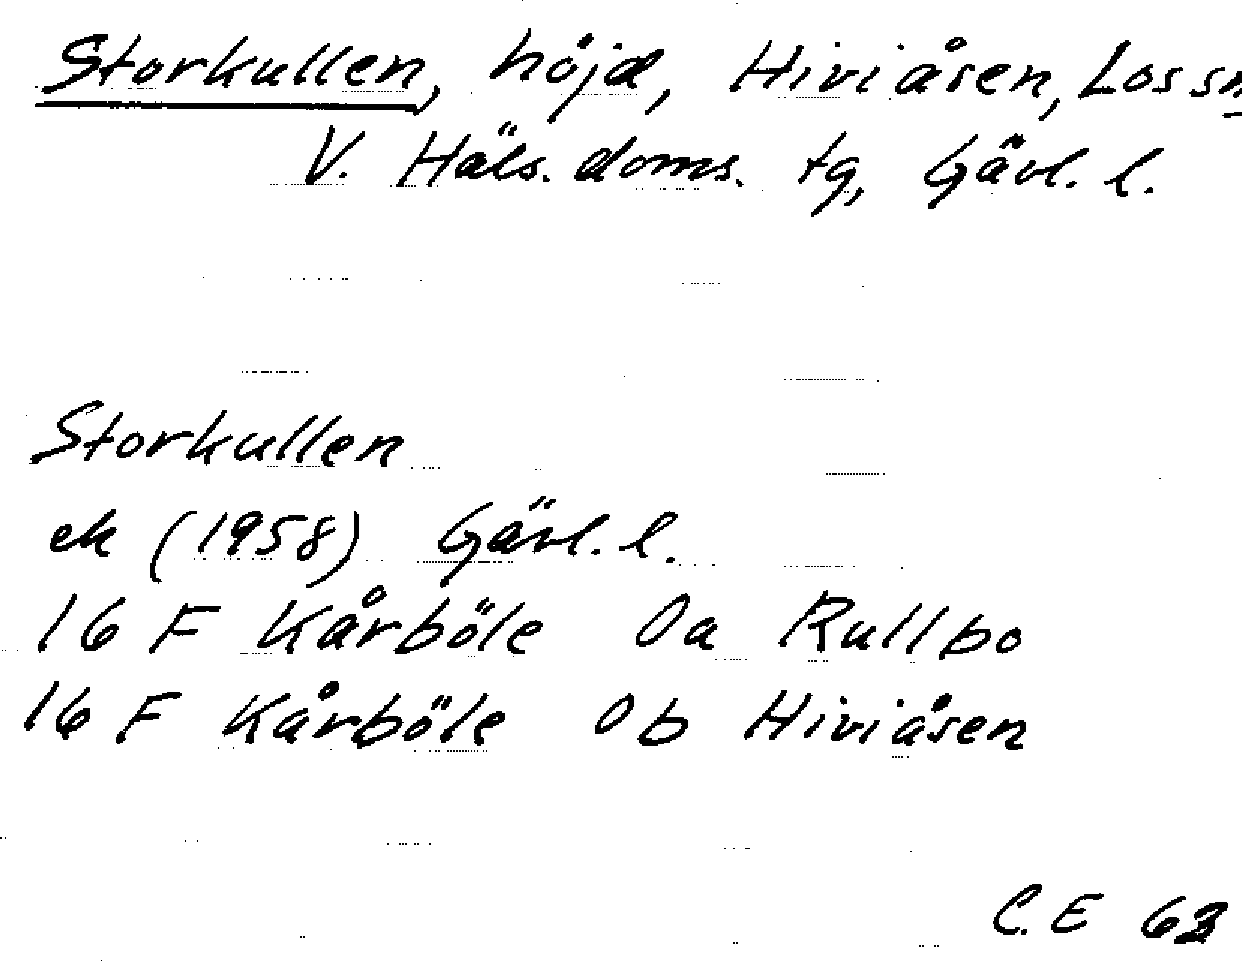 Storkullen, höjd, Hiviåsen, Los sn
V. Häls. doms. tg, Gävl. l.
Storkullen
ek (1958) Gävl. l.
16 F Kårböle 0a Rullbo
16 F Kårböle 0b Hiviåsen
C. E 63